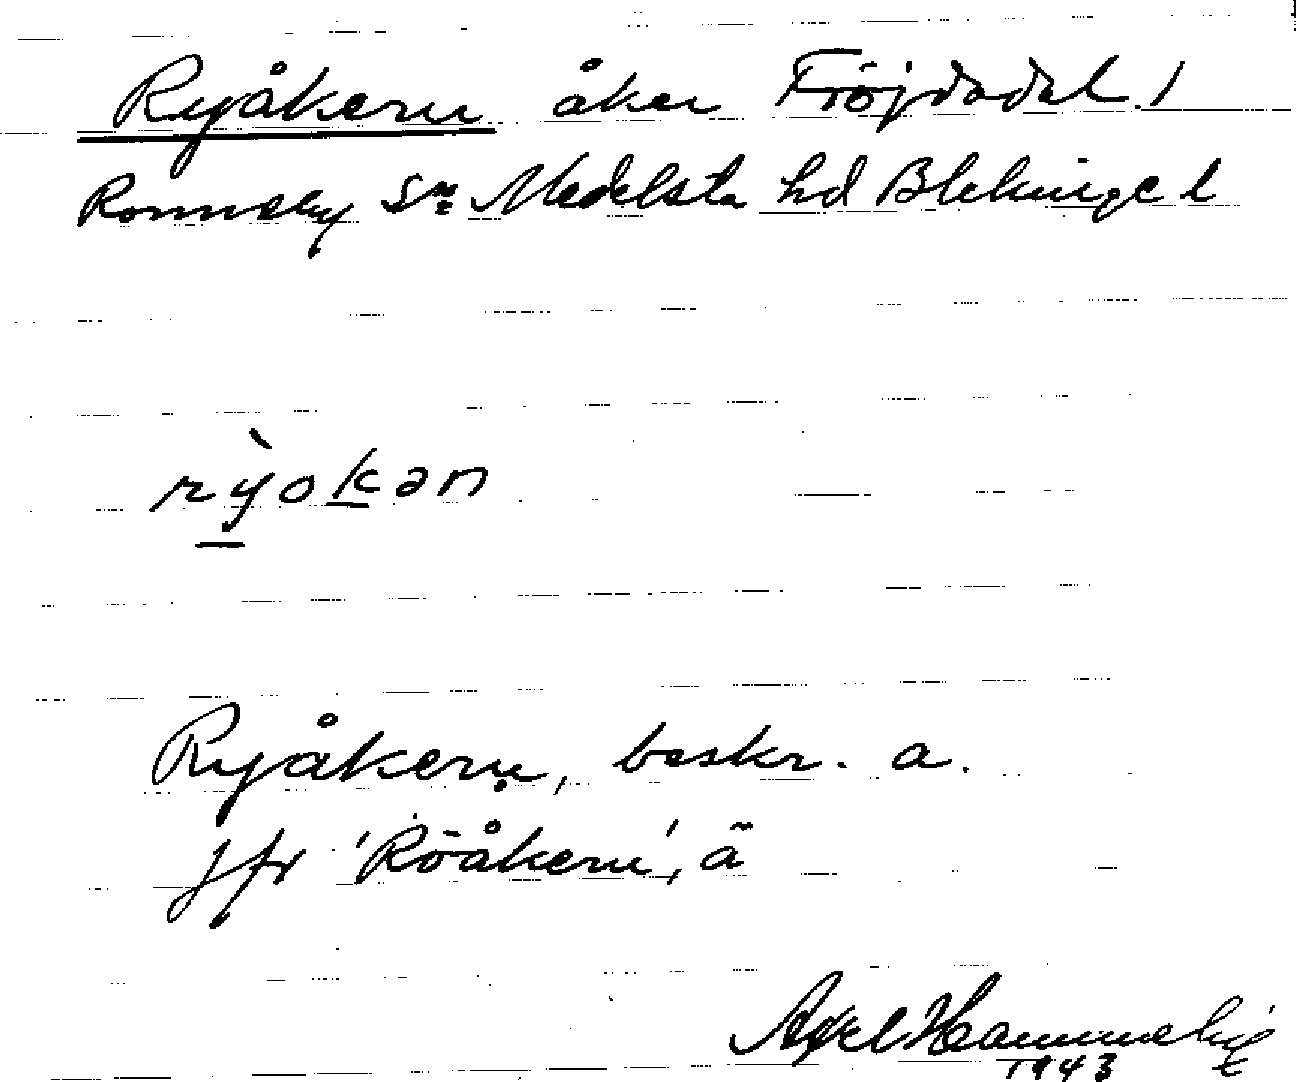 Ryåkern åker Fröjdadal 1
Ronneby Sn Medelsta hd Blekinge l
rỳokən
Ryåkern, beskr. a.
jfr 'Röåkern', ä
Axel Hammelig
1943